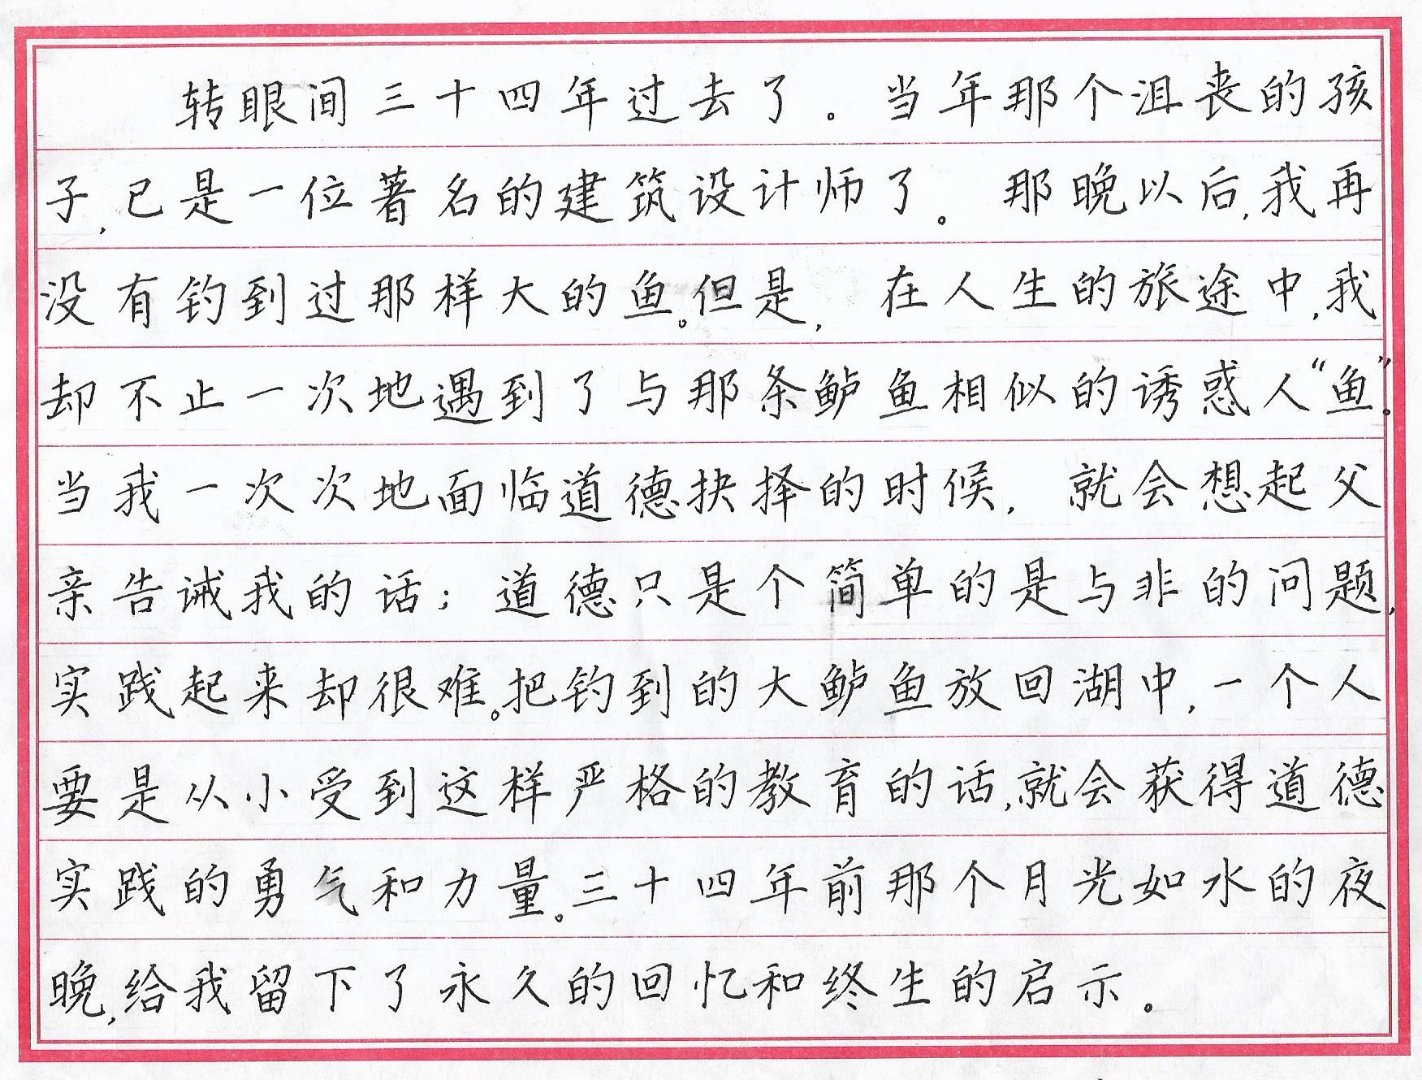 转眼间三十四年过去了。当年那个沮丧的孩
子,已是一位著名的建筑设计师了。那晚以后,我再
没有钓到过那样大的鱼。但是,在人生的旅途中,我
却不止一次地遇到了与那条鲈鱼相似的诱惑人“鱼”。
当我一次次地面临道德抉择的时候,就会想起父
亲告诫我的话:道德只是个简单的是与非的问题,
实践起来却很难。把钓到的大鲈鱼放回湖中,一个人
要是从小受到这样严格的教育的话,就会获得道德
实践的勇气和力量。三十四年前那个月光如水的夜
晚,给我留下了永久的回忆和终生的启示。